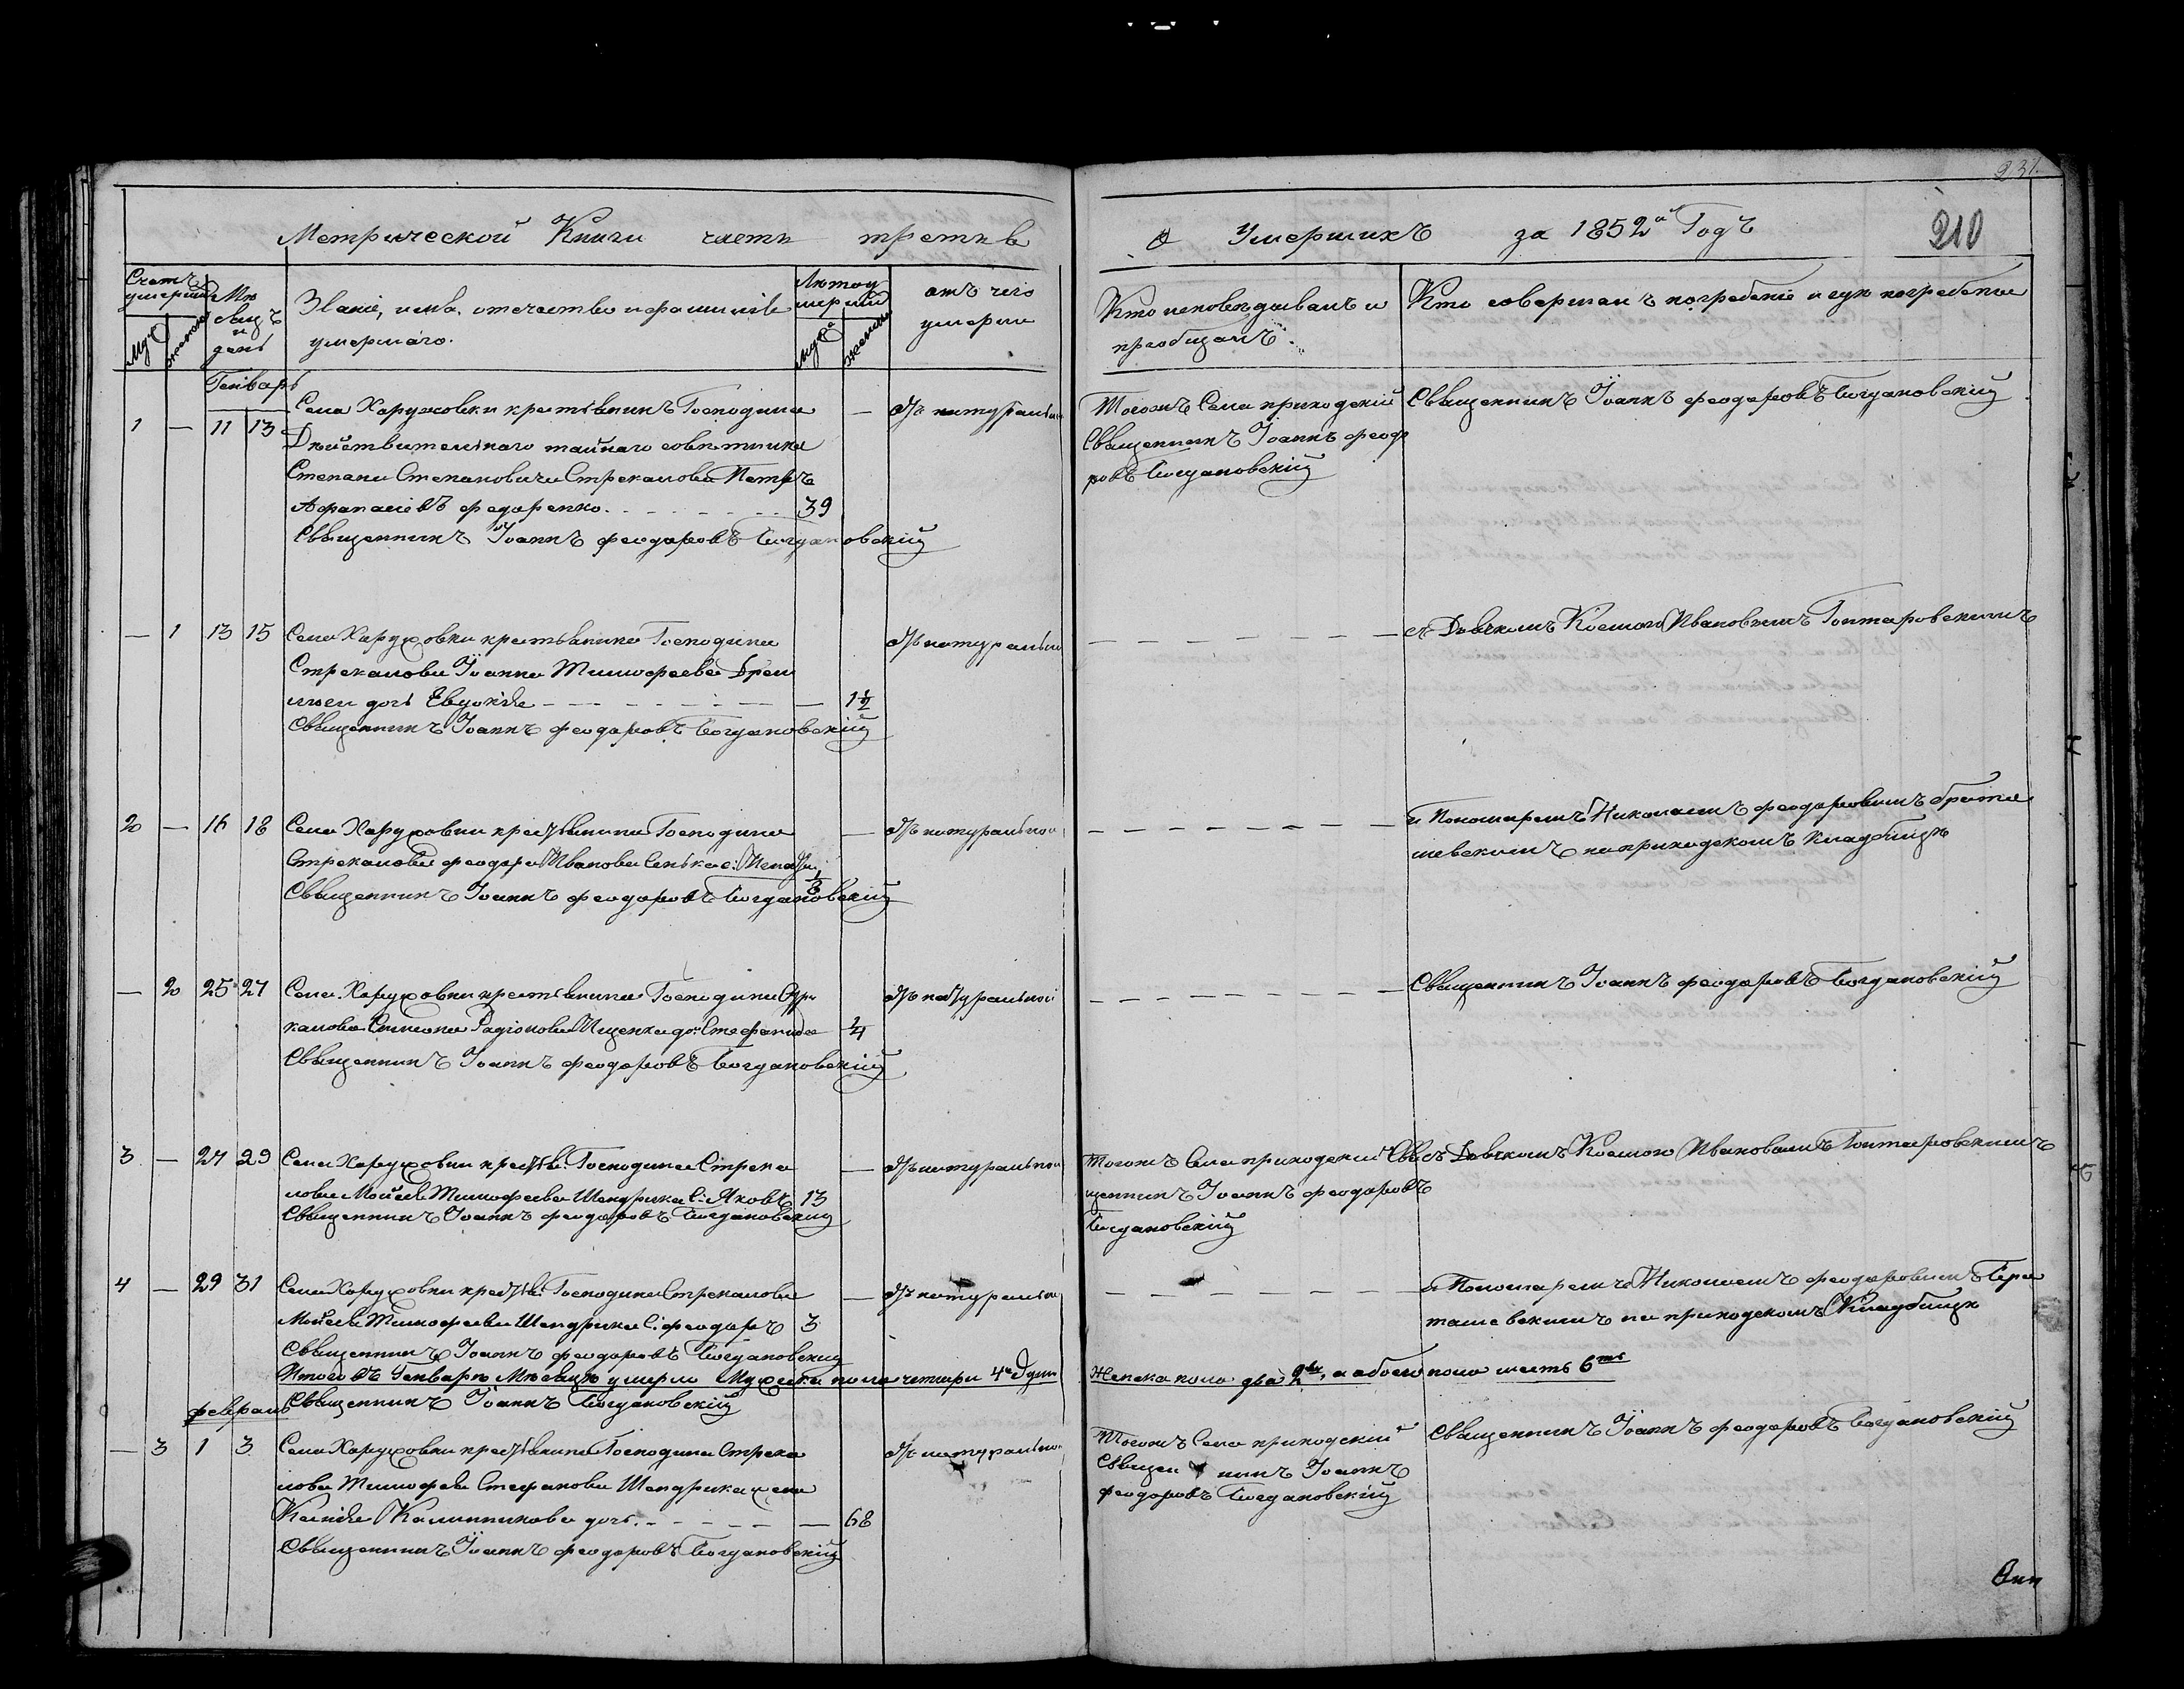 231.
Метрической Книги часть третья
о Умершихъ за 1852й Годъ
210
Счетъ умершихъ
Мѣсяцъ и день
Званіе, имя, отечество и фамилія умершаго.
Лѣта умершихъ
отъ чего умерли
Кто исповѣдывалъ и пріобщалъ.
Кто совершалъ погребеніе и гдѣ погребены
Муж
женска
муж
женска
Генварь
1 — 11 13
Села Харуховки крестьянинъ Господина
Дѣйствительнаго тайнаго совѣтника
Степана Степановича Стрекалова Петръ
Афанасіевъ Федоренко. 39
Священникъ Іоаннъ Феодоровъ Богдановскій
— отъ натуральной
Тогожъ Села приходскій
Священникъ Іоаннъ Феодо
ровъ Богдановскій
Священникъ Іоаннъ Феодоровъ Богдановскій
— 1 13 15
Села Харуховки крестьянина Господина
Стрекалова Іоанна Тимофеева
дочь Евдокія — 1½
Священникъ Іоаннъ Феодоровъ Богдановскій
отъ натуральной
съ Дьячкомъ Космою Ивановымъ Гонтаровскимъ
2 — 16 18
Села Харуховки крестьянина Господина
Стрекалова Феодора Иванова Сенька с:
Священникъ Іоаннъ Феодоровъ Богдановскій
— отъ натуральной
и Пономаремъ Николаемъ Феодоровымъ Брата
шевскимъ на приходскомъ Кладбищѣ
— 2 25 27
Села Харуховки крестьянина Господина Стре
калова Симеона Родіонова Ищенка доч: Стефанида ¼
Священникъ Іоаннъ Феодоровъ Богдановскій
отъ натуральной
Священникъ Іоаннъ Феодоровъ Богдановскій
3 — 27 29
Села Харуховки крестья: Господина Стрека
лова Моисея Тимофеева Шендрика с: Яковъ 13
Священникъ Іоаннъ Феодоровъ Богдановскій
— отъ натуральной
Тогожъ Села приходскій Свя
щенникъ Іоаннъ Феодоровъ
Богдановскій
съ Дьячкомъ Космою Ивановымъ Гонтаровскимъ
4 — 29 31
Села Харуховки крестья: Господина Стрекалова
Моисея Тимофеева Шендрика с: Феодоръ 3
Священникъ Іоаннъ Феодоровъ Богдановскій
— отъ натуральной
и Пономаремъ Николаемъ Феодоровымъ Бра
ташевскимъ на приходскомъ Кладбищѣ
Итого въ Генварѣ Мѣсяцѣ умерло Мужеска пола четыри 4 души
Женска пола два 2, а обоего пола шесть 6ть
Священникъ Іоаннъ Богдановскій
Февраль
— 3 1 3
Села Харуховки крестьянина Господина Стрека
лова Тимофея Стефанова Шендрика жена
Ксенія Калинникова дочь. — 68
Священникъ Іоаннъ Феодоровъ Богдановскій
отъ натуральной
Тогожъ Села приходскій
Священникъ Іоаннъ
Феодоровъ Богдановскій
Священникъ Іоаннъ Феодоровъ Богдановскій